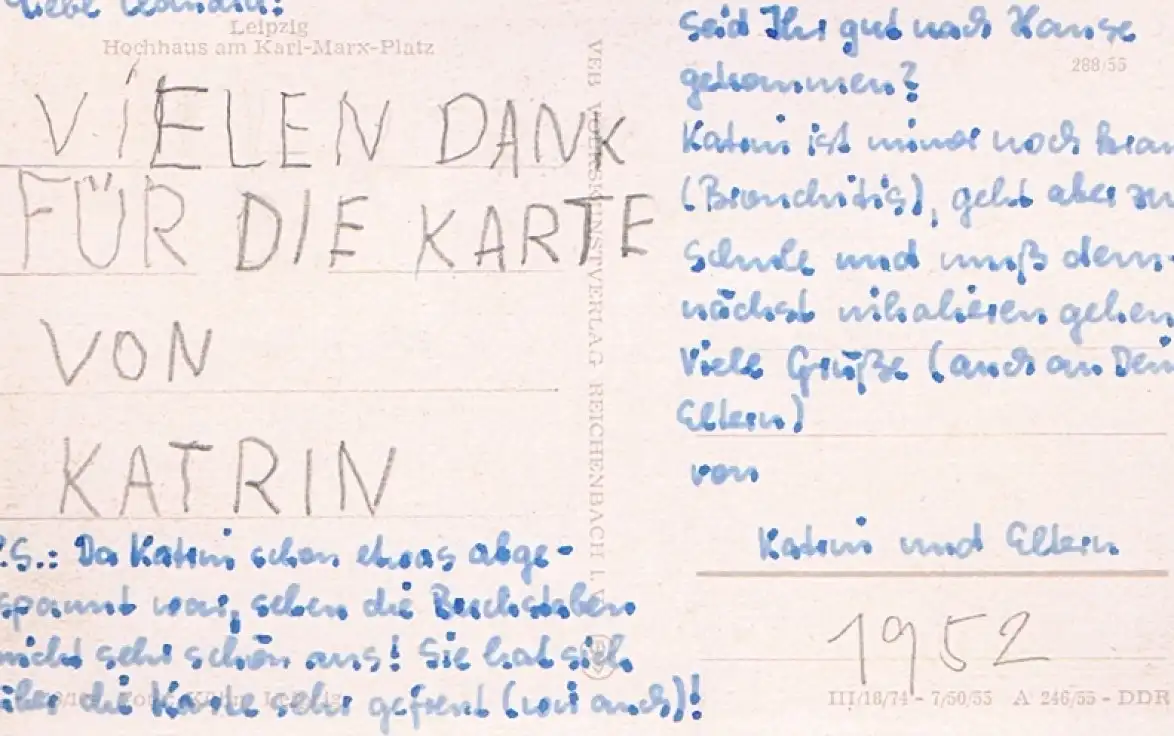 Liebe
Leipzig
Hochhaus am Karl-Marx-Platz
VIELEN DANK
FÜR DIE KARTE
VON
KATRIN
P.S.: Da Katrin schon etwas abge-
spannt war, sehen die Buchstaben
nicht sehr schön aus! Sie hat sich
über die Karte sehr gefreut (wir auch)!
VEB VOLKSKUNSTVERLAG REICHENBACH I. V.
Seid Ihr gut nach Hause
288/55
gekommen?
Katrin ist immer noch kran
(Bronchitis), geht aber zur
Schule und muß dem-
nächst inhalieren gehen
Viele Grüße (auch an Dein
Eltern)
von
Katrin und Eltern
1952
III/18/74 - 7/50/55 A 246/55 - DDR